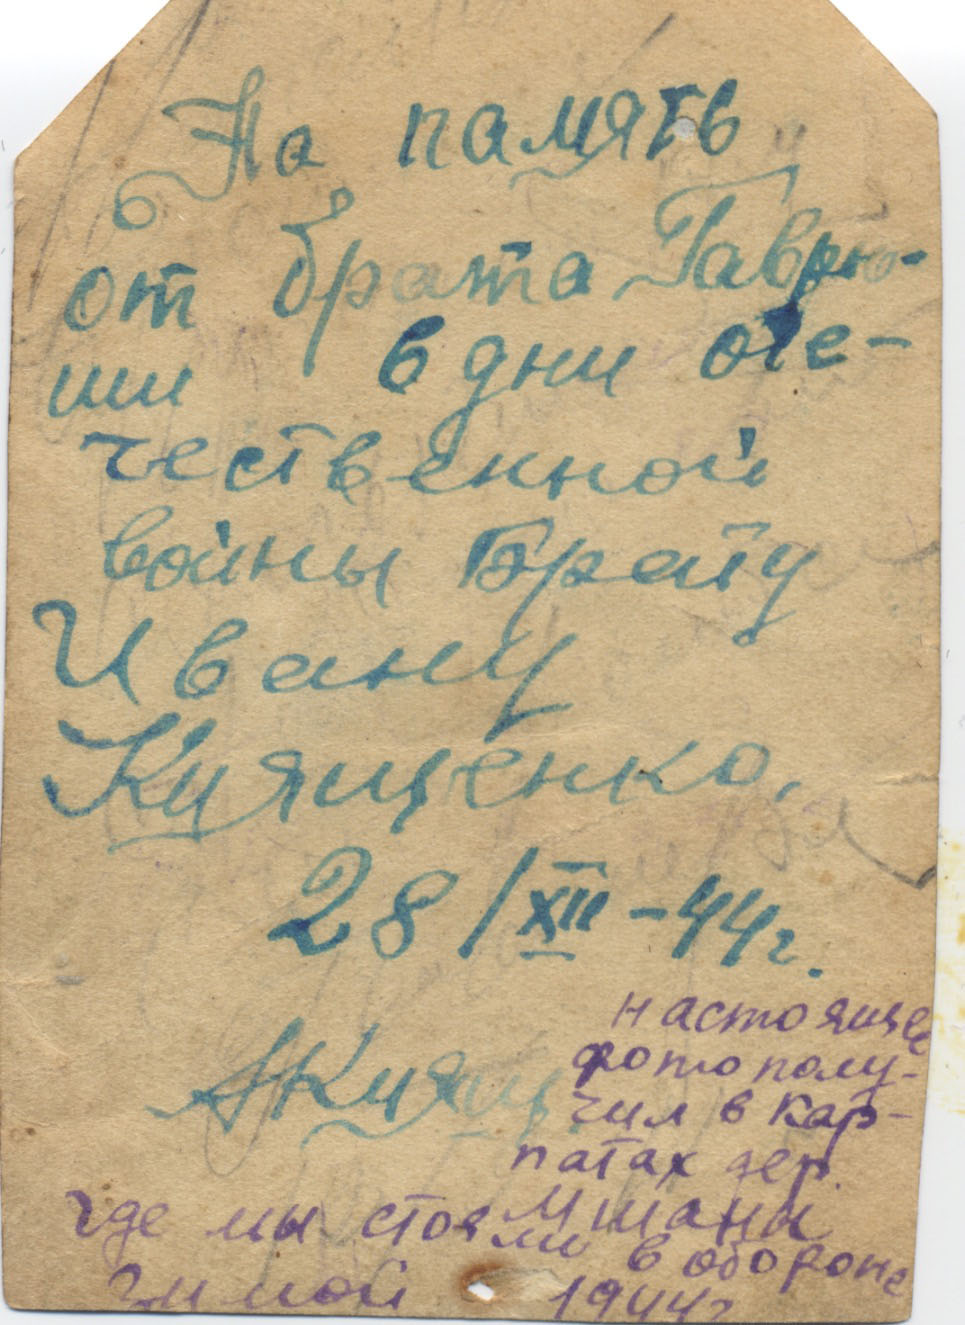 На память
от брата Гаврю-
ши в дни оте-
чественной
войны Брату
Ивану
Куященко.
28/XII-44г.
АКуящ
настоящее
фото полу-
чил в Кар-
патах дер.
Мшаны
где мы стояли в обороне
Зимой 1944г